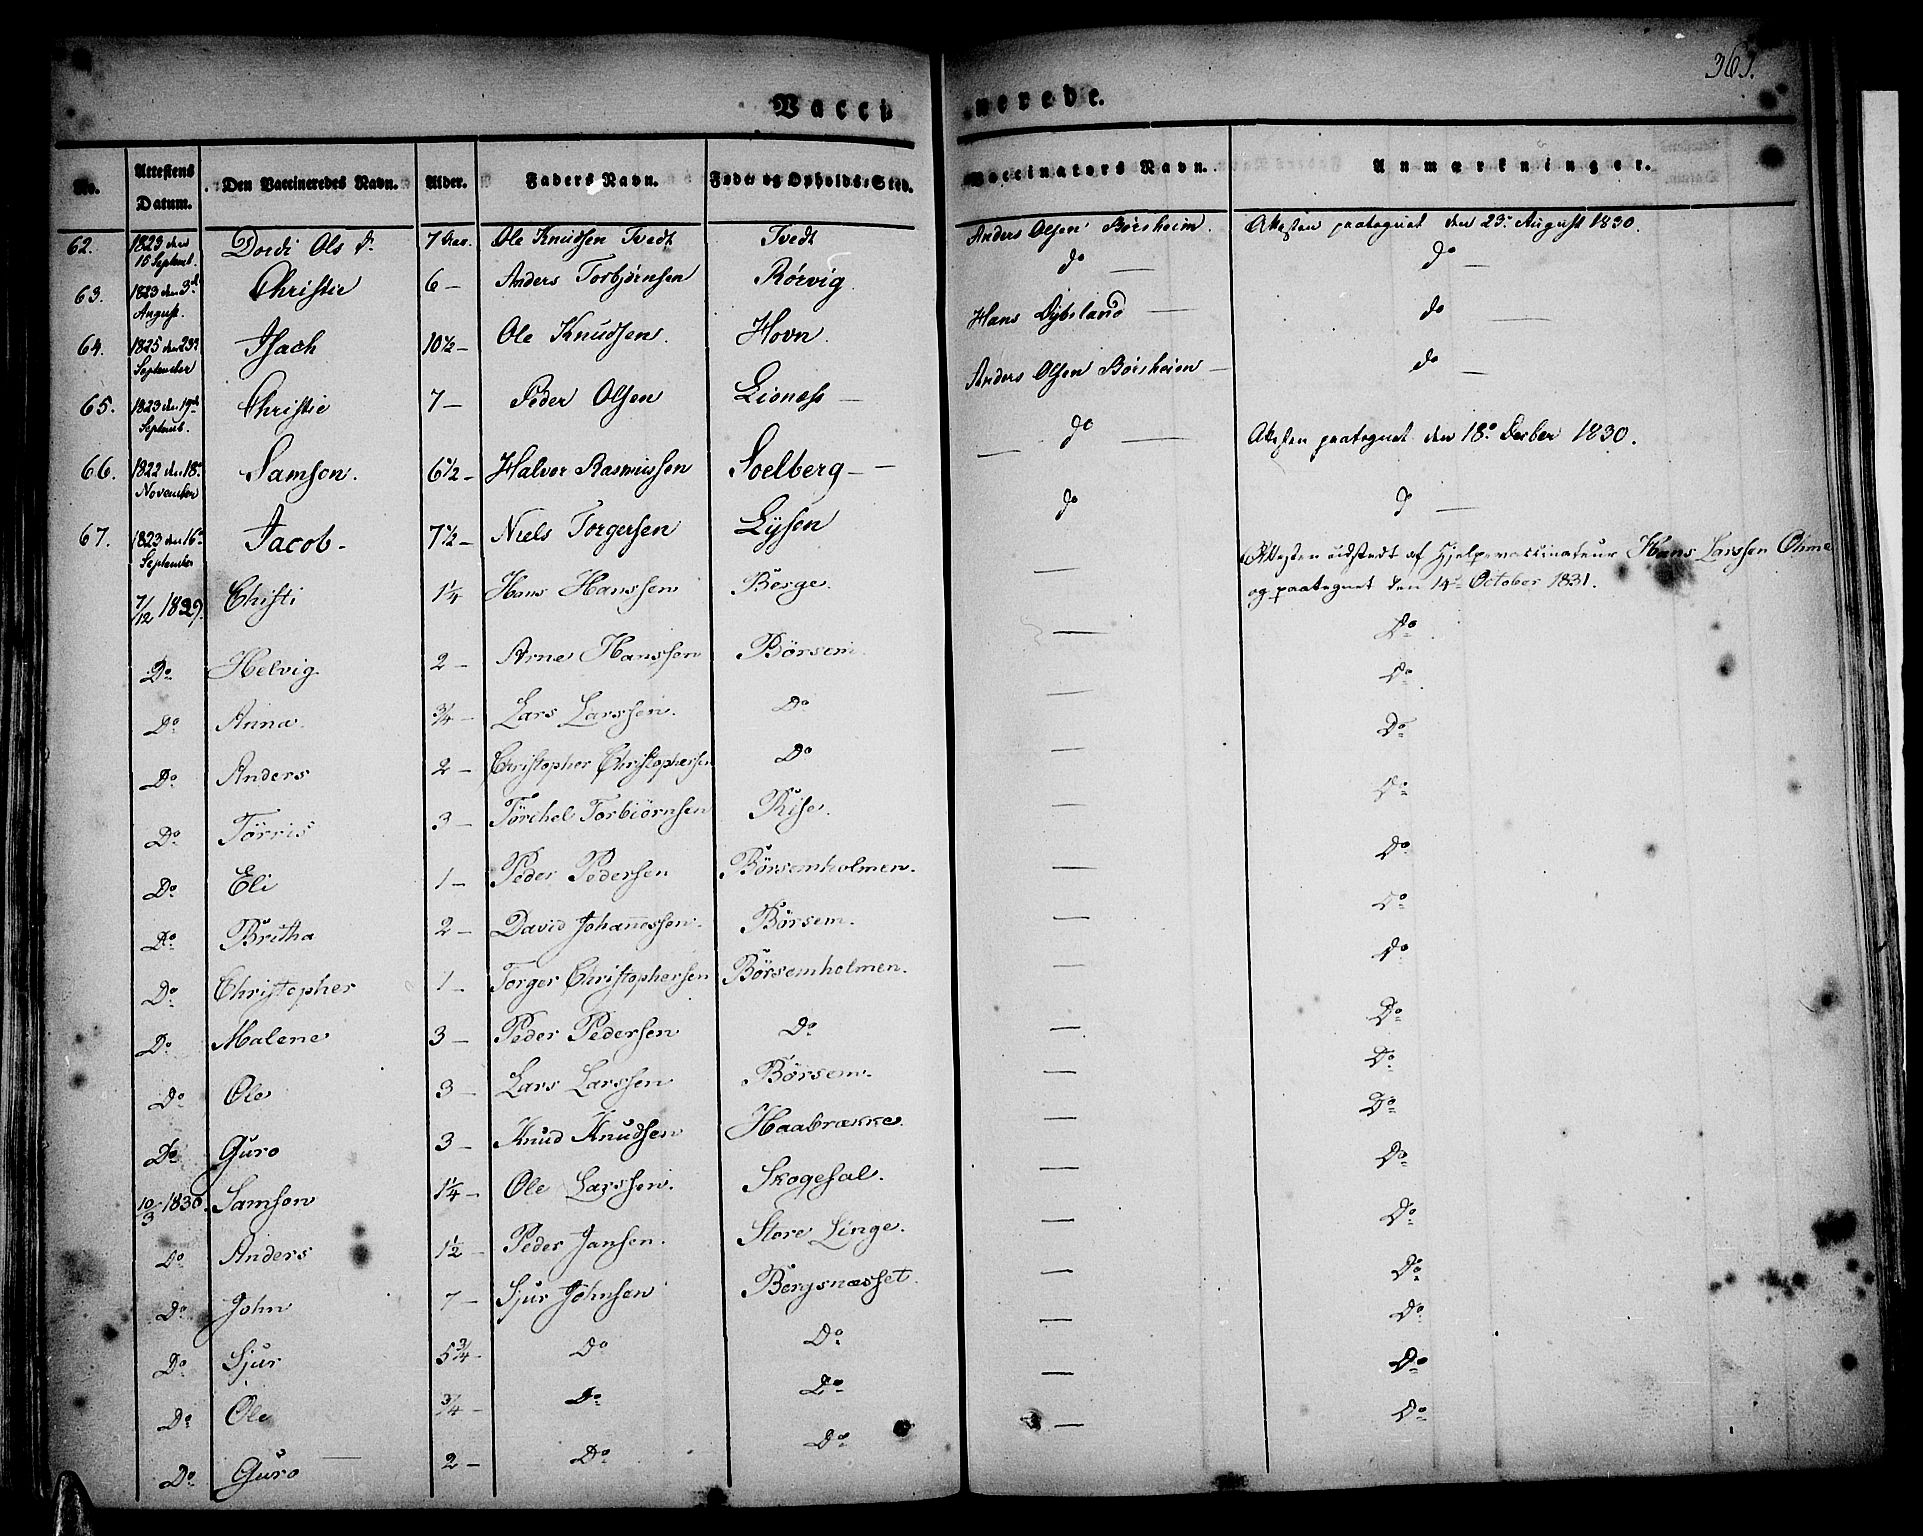 363.
Vacci nerede.
No. Attestens Datum. Den Vaccineredes Navn. Alder. Faders Navn. Føde- og Opholds-Sted. Vaccinators Navn. Anmærkninger.
62. 1823 den 16 Septemb. Dordi Ols d. 7 Aar. Ole Knudsen Tvedt Tvedt Anders Olsen Börsheim. Attesten paategnet den 23. August 1830.
63. 1823 den 3d August. Christie 6 — Anders Torbjørnsen Rörvig do — do —
64. 1825 den 23d September Isach 10 1/2 — Ole Knudsen. Hovn Hans Dybsland — do —
65. 1823 den 19de Septemb. Christie 7 — Peder Olsen Lioness — Anders Olsen Börsheim — do —
66. 1822 den 18. November Samson. 6 1/2 — Halvor Rasmussen Soelberg — do — Attesten paategnet den 18. Decbər 1830.
67. 1823 den 16. September Jacob — 7 1/2 — Niels Torgersen Lysen do d —
7/12 1829. Christi 1 1/4 Hans Hanssen Berge. — Attesten udstedt af Hjelpevaccinateur Hans Larssen Ohme
og paategnet den 14. October 1831.
Do Helvig 2 — Arne Hanssen Börsem. — Do
Do Anna. 3/4 — Lars Larssen. Do — Do
Do Anders 2 — Christopher Christophersen Do — Do
Do Törris 3 — Törchel Torbiörnsen Rise. — Do
Do Eli 1 — Peder Pedersen Börsemholmen. — Do
Do Britha 2 — David Johannessen. Börsem. — Do
Do Christopher 1 — Torger Christophersen Börsemholmen. — Do
Do Malene 3 — Peder Pedersen Do — Do
Do Ole 3 — Lars Larssen Börsem. — Do
Do Guro 3 — Knud Knudsen Haabrække. — Do
10/3 1830. Samson 1 1/4 — Ole Larssen. Skogesal. — Do
Do Anders 1 1/2 — Peder Jansen. Store Linge. — Do
Do John 7 — Sjur Johnsen Bergsnæsset. — Do
Do Sjur 5 3/4 — Do Do — Do
Do Ole 3/4 — Do Do — Do
Do Guro 2 — Do Do — Do